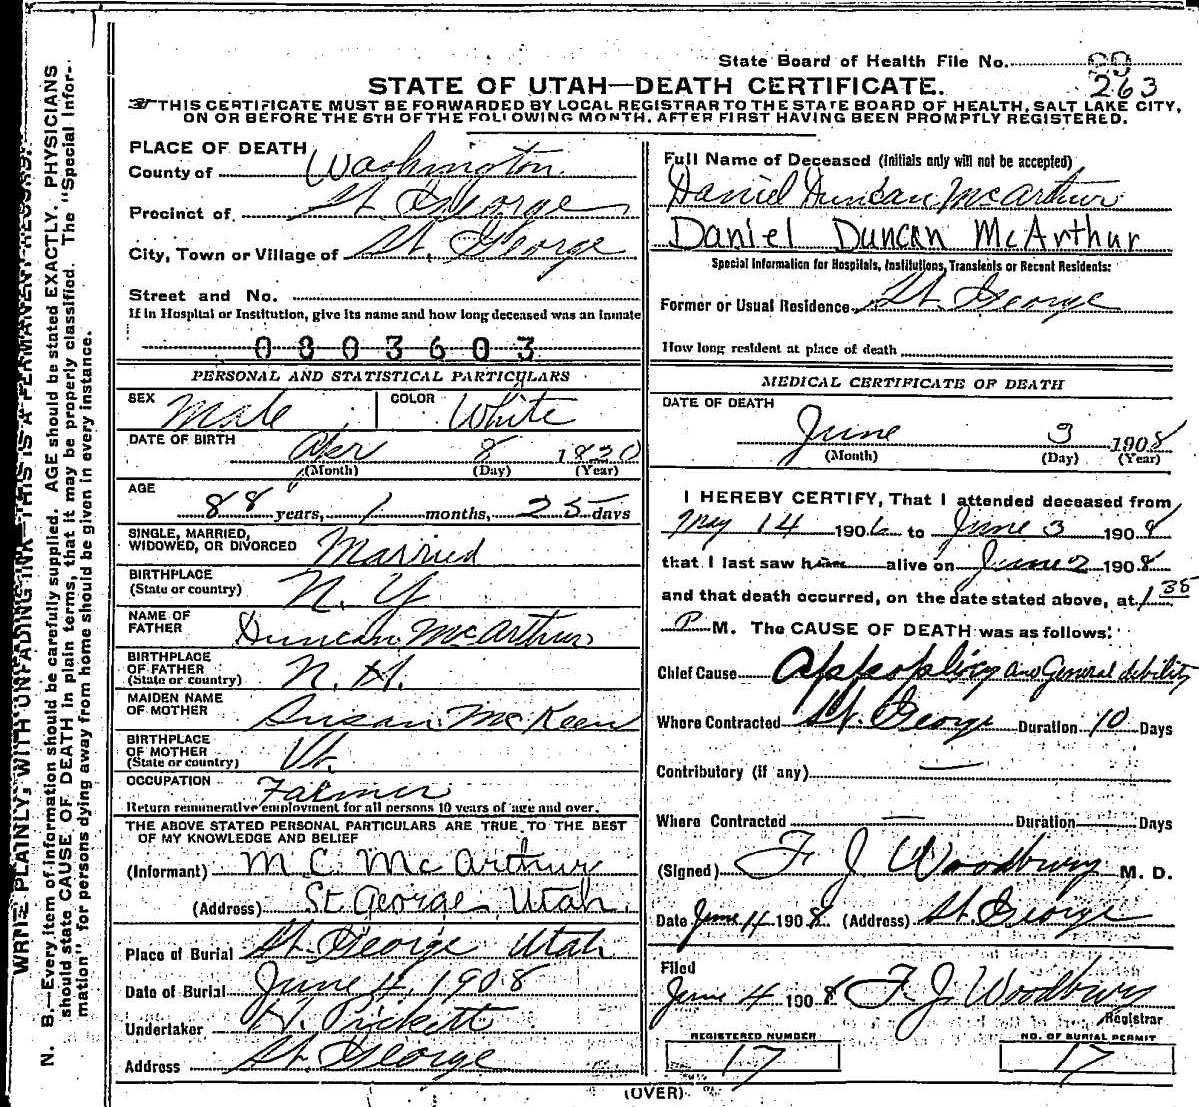 State Board of Health File No. 99
263
STATE OF UTAH—DEATH CERTIFICATE.
THIS CERTIFICATE MUST BE FORWARDED BY LOCAL REGISTRAR TO THE STATE BOARD OF HEALTH, SALT LAKE CITY,
ON OR BEFORE THE 5TH OF THE FOLLOWING MONTH, AFTER FIRST HAVING BEEN PROMPTLY REGISTERED.
WRITE PLAINLY, WITH UNFADING INK—THIS IS A PERMANENT RECORD.
N. B.—Every item of information should be carefully supplied. AGE should be stated EXACTLY. PHYSICIANS
should state CAUSE OF DEATH in plain terms, that it may be properly classified. The "Special Infor-
mation" for persons dying away from home should be given in every instance.
PLACE OF DEATH
County of Washington
Precinct of St. George
City, Town or Village of St. George
Street and No.
If in Hospital or Institution, give its name and how long deceased was an inmate
0803603
PERSONAL AND STATISTICAL PARTICULARS
SEX Male COLOR White
DATE OF BIRTH Apr 8 1820
(Month) (Day) (Year)
AGE
88 years, 1 months, 25 days
SINGLE, MARRIED,
WIDOWED, OR DIVORCED Married
BIRTHPLACE
(State or country) N. Y
NAME OF
FATHER Duncan McArthur
BIRTHPLACE
OF FATHER
(State or country) N. H.
MAIDEN NAME
OF MOTHER Susan McKeen
BIRTHPLACE
OF MOTHER
(State or country) Vt.
OCCUPATION Farmer
Return remunerative employment for all persons 10 years of age and over.
THE ABOVE STATED PERSONAL PARTICULARS ARE TRUE TO THE BEST
OF MY KNOWLEDGE AND BELIEF
(Informant) M C McArthur
(Address) St George Utah
Place of Burial St. George Utah
Date of Burial June 4, 1908
Undertaker H. Pickett
Address St. George
Full Name of Deceased (Initials only will not be accepted)
Daniel Duncan McArthur
Daniel Duncan McArthur
Special Information for Hospitals, Institutions, Transients or Recent Residents:
Former or Usual Residence St. George
How long resident at place of death
MEDICAL CERTIFICATE OF DEATH
DATE OF DEATH
June 3 1908
(Month) (Day) (Year)
I HEREBY CERTIFY, That I attended deceased from
May 14 1906 to June 3 1908
that I last saw him alive on June 2 1908
and that death occurred, on the date stated above, at 1 35
P M. The CAUSE OF DEATH was as follows:
Chief Cause Appoplixy and General debility
Where Contracted St. George Duration 10 Days
Contributory (if any) —
Where Contracted — Duration — Days
(Signed) F J Woodbury M. D.
Date June 4 1908 (Address) St. George
Filed
June 4 1908 F. J. Woodbury
Registrar
REGISTERED NUMBER
17
NO. OF BURIAL PERMIT
17
(OVER)